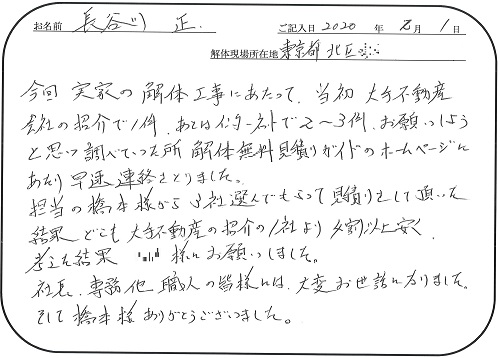 お名前 長谷川 正 ご記入日 2020 年 8月 1日
解体現場所在地 東京都 北区
今回 実家の解体工事にあたって、当初 大手不動産
会社の紹介で1件、あとはインターネットで2〜3件、お願いしよう
と思って調べていった所 解体無料見積りガイドのホームページに
あたり 早速 連絡をとりました。
担当の橋本様から3社選んでもらって見積りをして頂いた
結果 どこも 大手不動産の紹介の1社より 2割以上安く、
考えた結果 様にお願いしました。
社長、専務他 職人の皆様には、大変お世話になりました。
そして橋本様ありがとうございました。